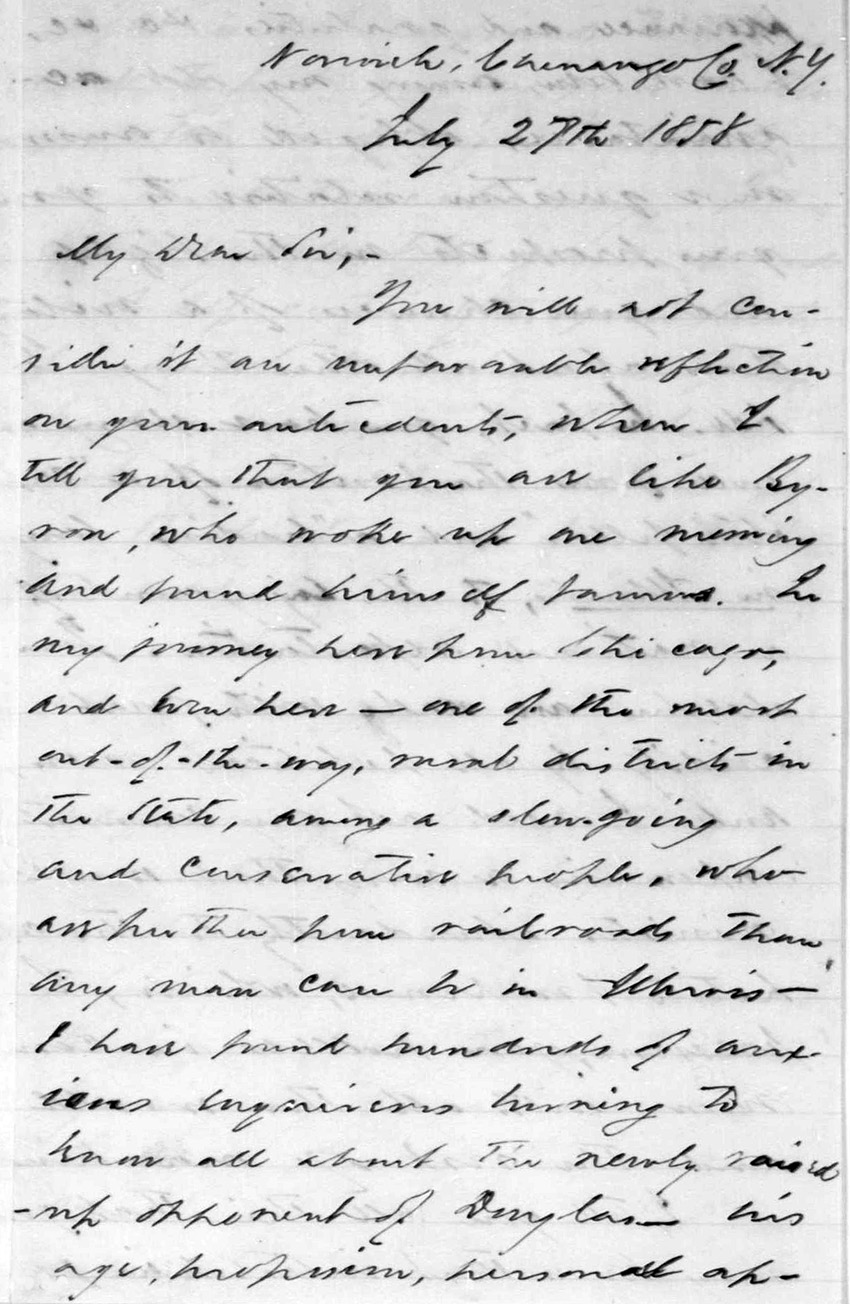 Norwich, Chenango Co. N.Y.
July 27th 1858
My Dear Sir,-
You will not con-
sider it an unfavorable reflection
on your antecedents, when I
tell you that you are like By-
ron, who woke up one morning
and found himself famous. In
my journey here from Chicago,
and even here — one of the most
out-of-the-way, rural districts in
the State, among a slow-going
and conservative people, who
are further from railroads than
any man can be in Illinois —
I have found hundreds of anx-
ious enquirers burning to
know all about the newly raised
-up opponent of Douglas — his
age, profession, personal ap-